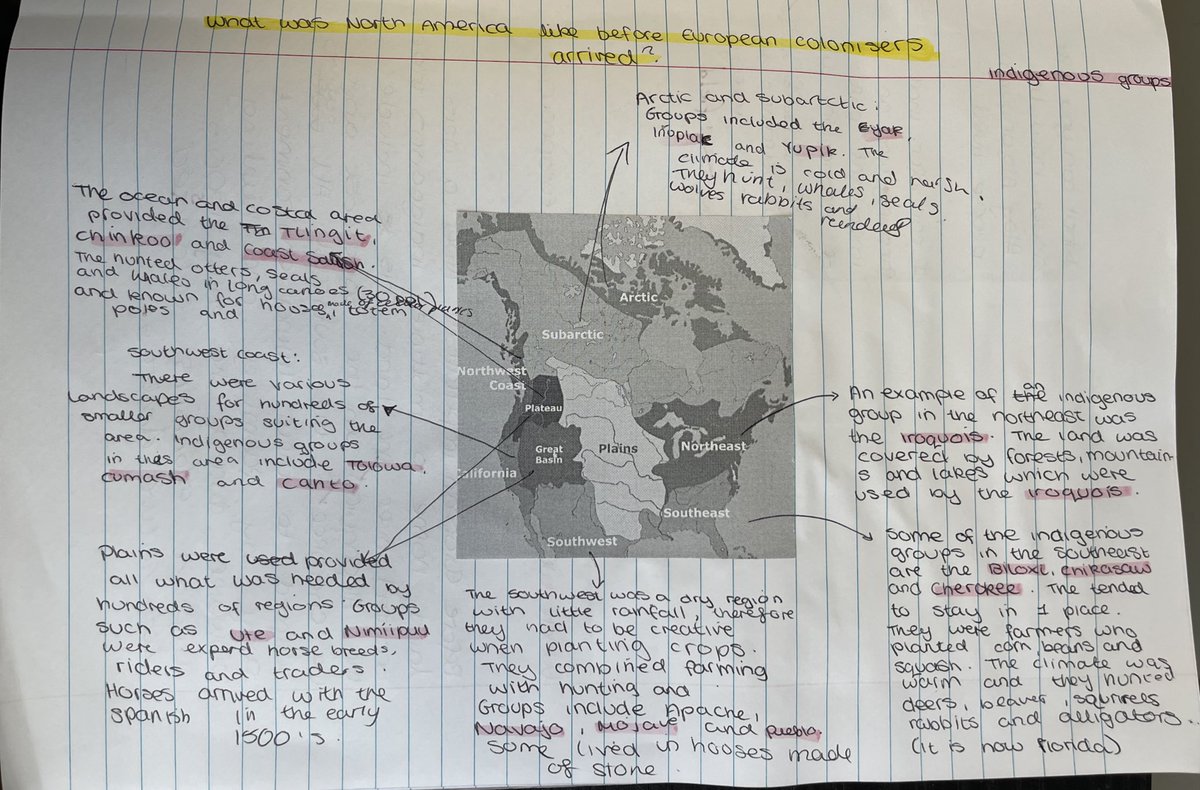 what was North America like before European colonisers
arrived?
indigenous groups
Arctic and subarctic:
Groups included the Eyak,
Inopiak and Yupik. The
climate is cold and harsh.
They hunt, whales, seals,
wolves rabbits and
reindeer
The ocean and costal area
provided the Tlingit,
chinkoo and Coast Salish.
The hunted otters, seals
and wales in long canoes
and known for houses, made of cedar planks
poles and totem
southwest coast:
There were various
landscapes for hundreds of
smaller groups suiting the
area. Indigenous groups
in this area include Tolowa,
cumash and canto.
Plains were used provided
all what was needed by
hundreds of regions. Groups
such as ute and Nimiipuu
were experd horse breeds,
riders and traders.
Horses arrived with the
spanish in the early
1500's.
Arctic
Subarctic
Northwest
Coast
Plateau
Great
Basin
Plains
Northeast
California
Southeast
Southwest
The southwest was a dry region
with little rainfall, therefore
they had to be creative
when planting crops.
They combined farming
with hunting and
Groups include Apache,
Navajo, Mojave and pueblo.
Some lived in hooses made
of stone.
An example of the an indigenous
group in the northeast was
the iroquois. The land was
covered by forests, mountain-
s and lakes which were
used by the iroquois.
Some of the indigenious
groups in the southeast
are the Biloxi, chikasaw
and cherokee. The tended
to stay in 1 place.
They were farmers who
planted corn, beans and
squash. The climate was
warm and they hunted
deers, beaver, squirrels
rabbits and alligators..
(it is now Florida)